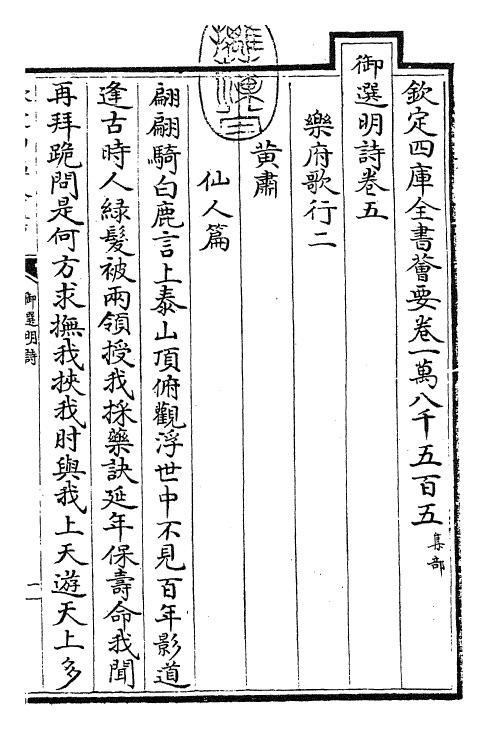 欽定四庫全書薈要卷一萬八千五百五 集部
御選明詩卷五
樂府歌行二
黃肅
仙人篇
翩翩騎白鹿言上泰山頂俯觀浮世中不見百年影道
逢古時人緑髮被兩領授我採藥訣延年保壽命我聞
再拜跪問是何方求撫我挾我肘與我上天遊天上多
御選明詩
一